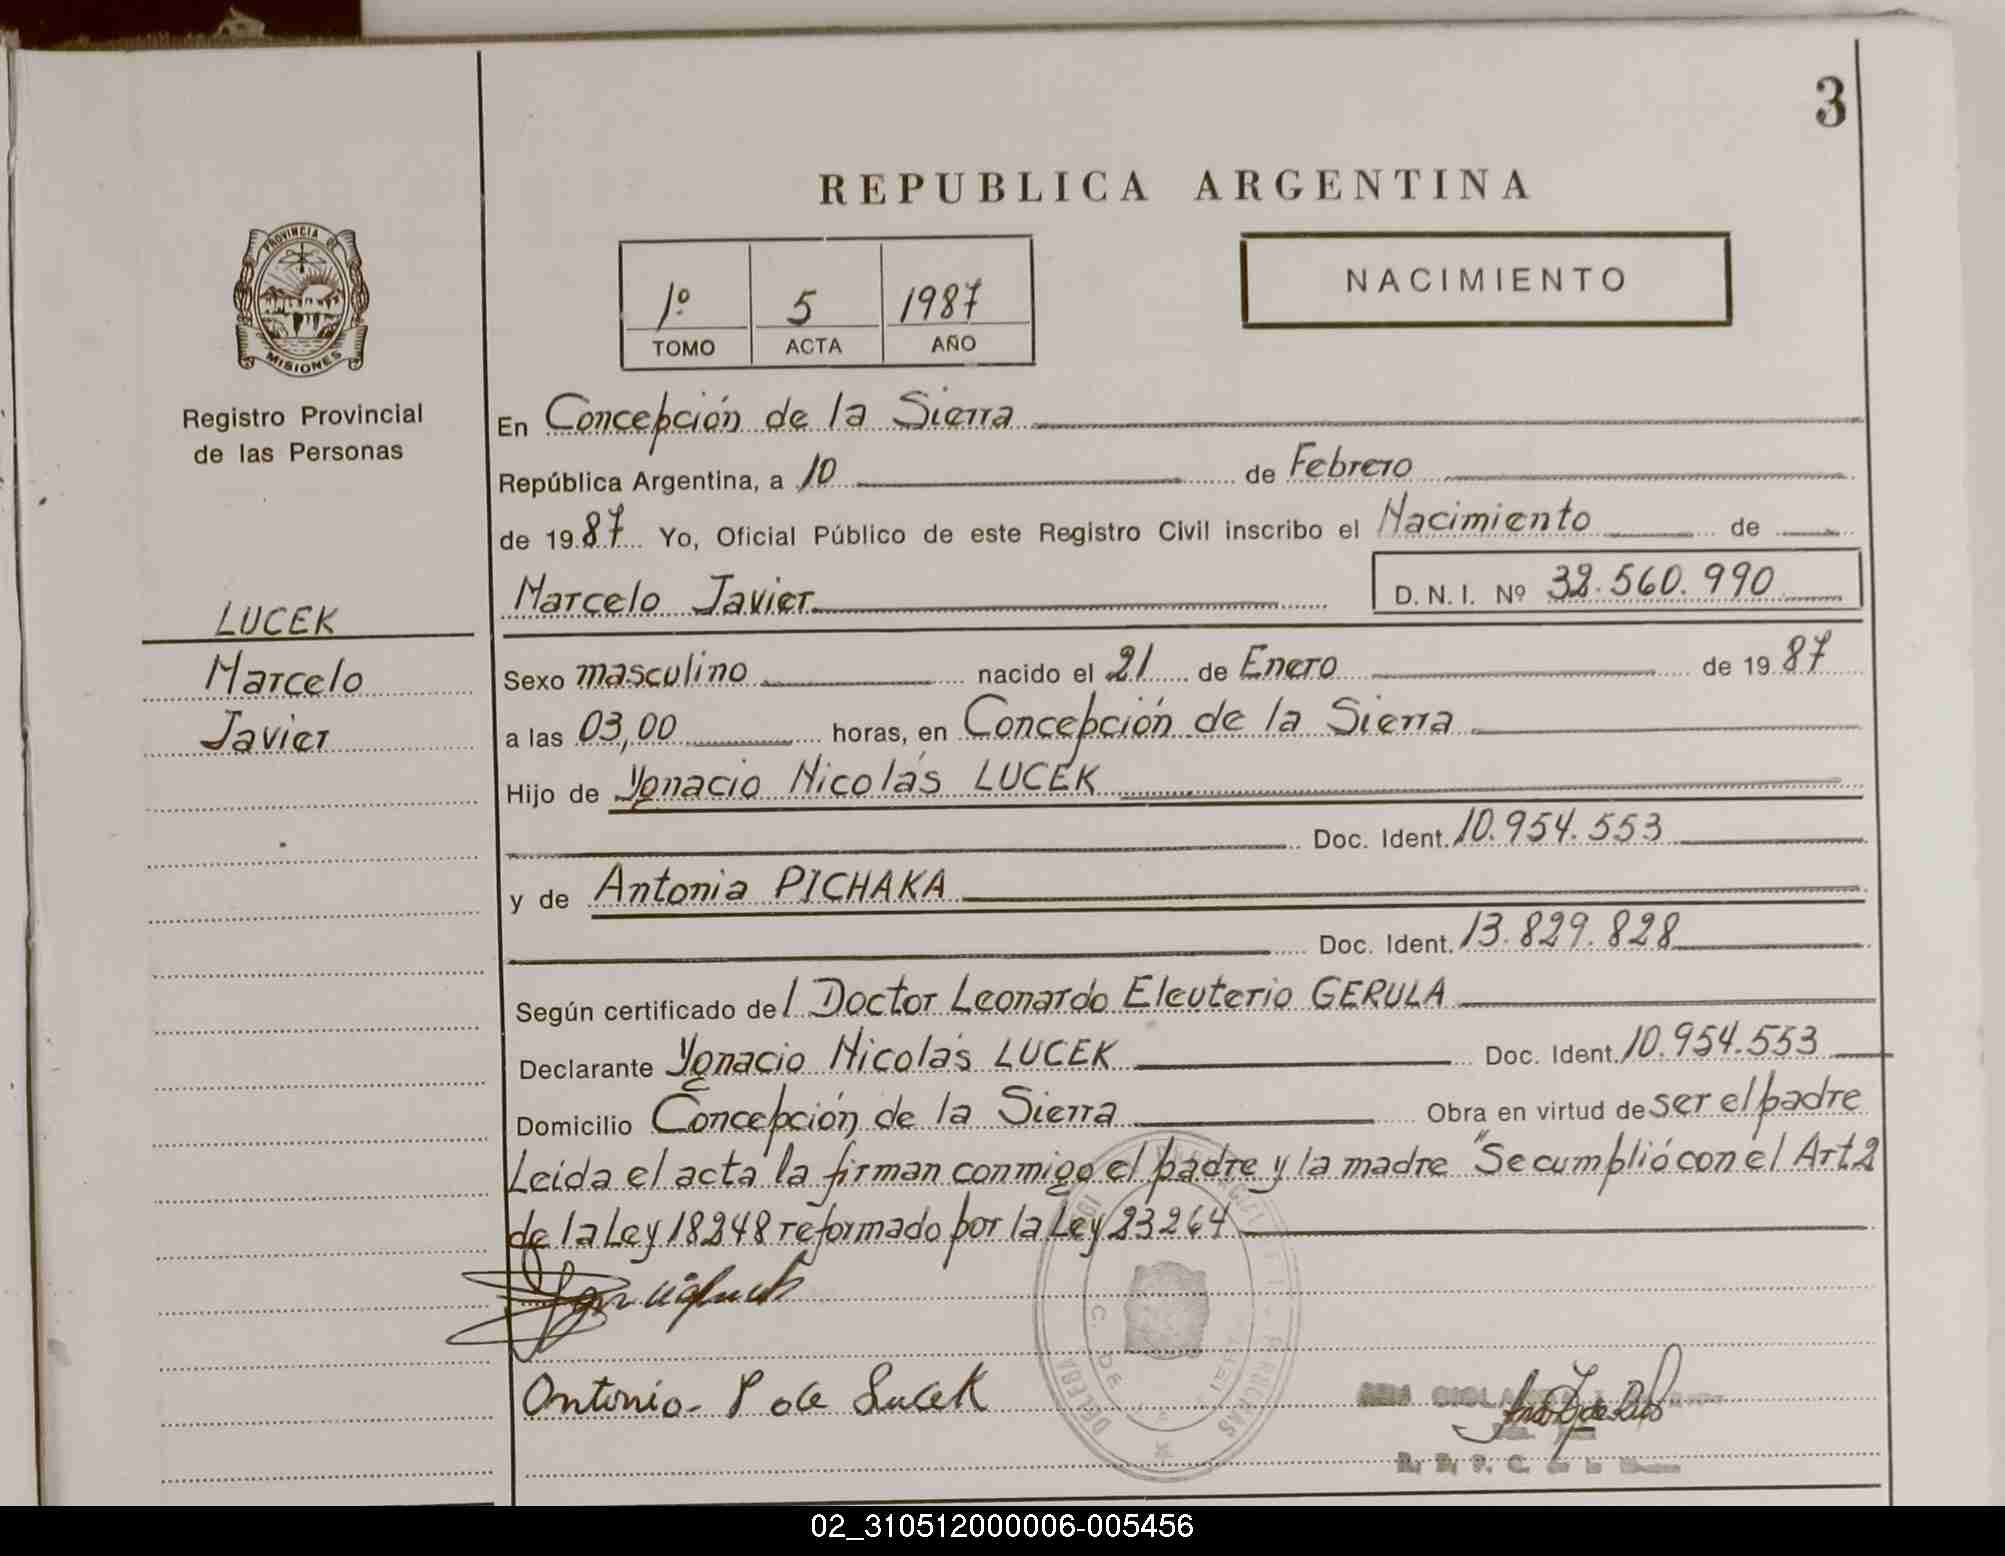 3
REPUBLICA ARGENTINA
PROVINCIA DE
MISIONES
1º 5 1987
TOMO ACTA AÑO
NACIMIENTO
Registro Provincial
de las Personas
En Concepción de la Sierra
República Argentina, a 10 de Febrero
de 1987 Yo, Oficial Público de este Registro Civil inscribo el Nacimiento de
Marcelo Javier D. N. I. Nº 32.560.990
LUCEK
Marcelo
Javier
Sexo masculino nacido el 21 de Enero de 1987
a las 03,00 horas, en Concepción de la Sierra
Hijo de Ygnacio Nicolás LUCEK
Doc. Ident. 10.954.553
y de Antonia PICHAKA
Doc. Ident. 13.829.828
Según certificado del Doctor Leonardo Eleuterio GERULA
Declarante Ygnacio Nicolás LUCEK Doc. Ident. 10.954.553
Domicilio Concepción de la Sierra Obra en virtud de ser el padre
Leida el acta la firman conmigo el padre y la madre "Se cumplió con el Art 2
de la Ley 18248 reformado por la Ley 23264
Antonia P de Lucek
02_310512000006-005456